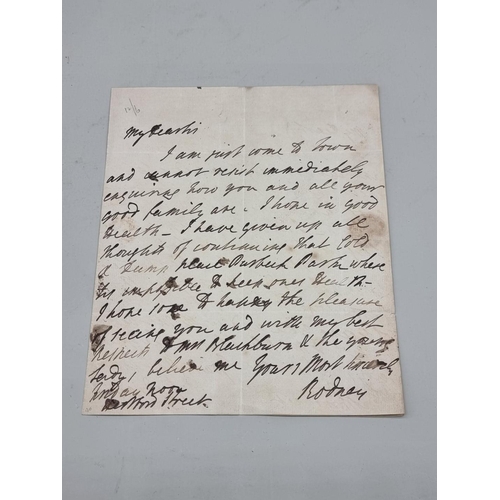 My dear Sir
I am just come to town
and cannot resist immediately
enquiring how you and all your
good family are. I hope in good
Health - I have given up all
thoughts of continuing that cold
& damp place Purbeck Park where
tis impossible to keep ones Health -
I hope soon to have the pleasure
of seeing you and with my best
respects to Mrs Blackburn & the young
Lady, believe me Yours Most sincerely
Noon Rodney
Street.